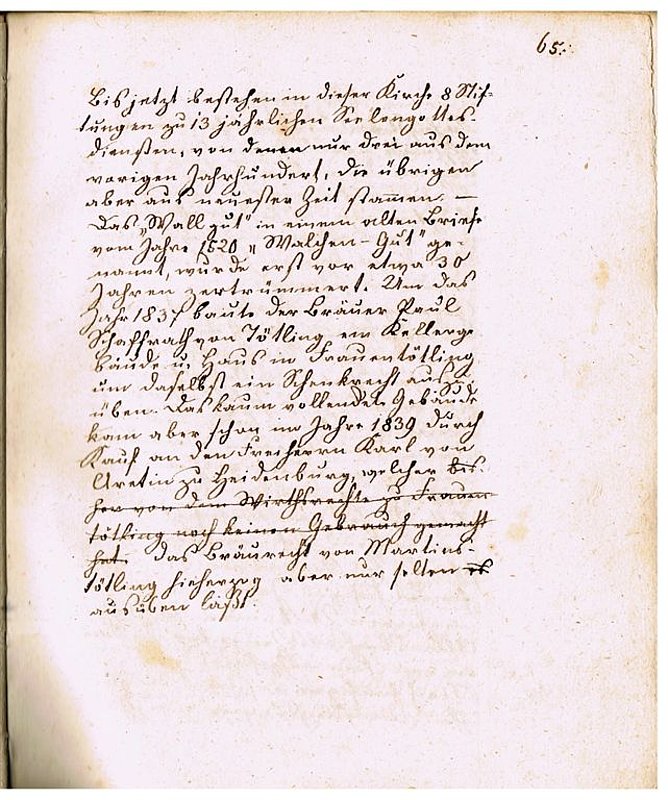 65.
Bis jetzt bestehen in dieser Kirche 8 Stif-
tungen zu 13 jährlichen Seelengottes-
diensten, von denen nur drei aus dem
vorigen Jahrhundert, die übrigen
aber aus neuester Zeit stammen. —
Das „Wallgut" in einem alten Briefe
vom Jahre 1520 „Walchen-Gut" ge-
nannt, wurde erst vor etwa 30
Jahren zertrümmert. Um das
Jahr 183 baute der Bräuer Paul
Schaffrath von Tötling ein Kellerge-
bäude u. Haus in Frauentötling
um daselbst ein Schenkrecht auszu-
üben. Das kaum vollendete Gebäude
kam aber schon im Jahre 1839 durch
Kauf an den Freiherrn Karl von
Aretin zu Heidenburg, welcher bis-
her von dem Wirthsrechte zu Frauen-
tötling noch keinen Gebrauch gemacht
hat. das Bräurecht von Martins-
tötling hieherzog aber nur selten es
ausüben läßt.